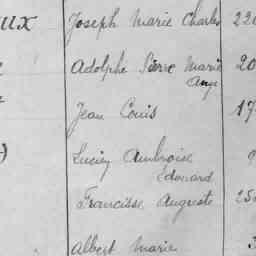 UX Joseph Marie Charles 220
Adolphe Pierre Marie 20
Ange
Jean Louis 17
Lucien Ambroise 9
Edouard
Francisse Auguste 25
Albert Marie 3